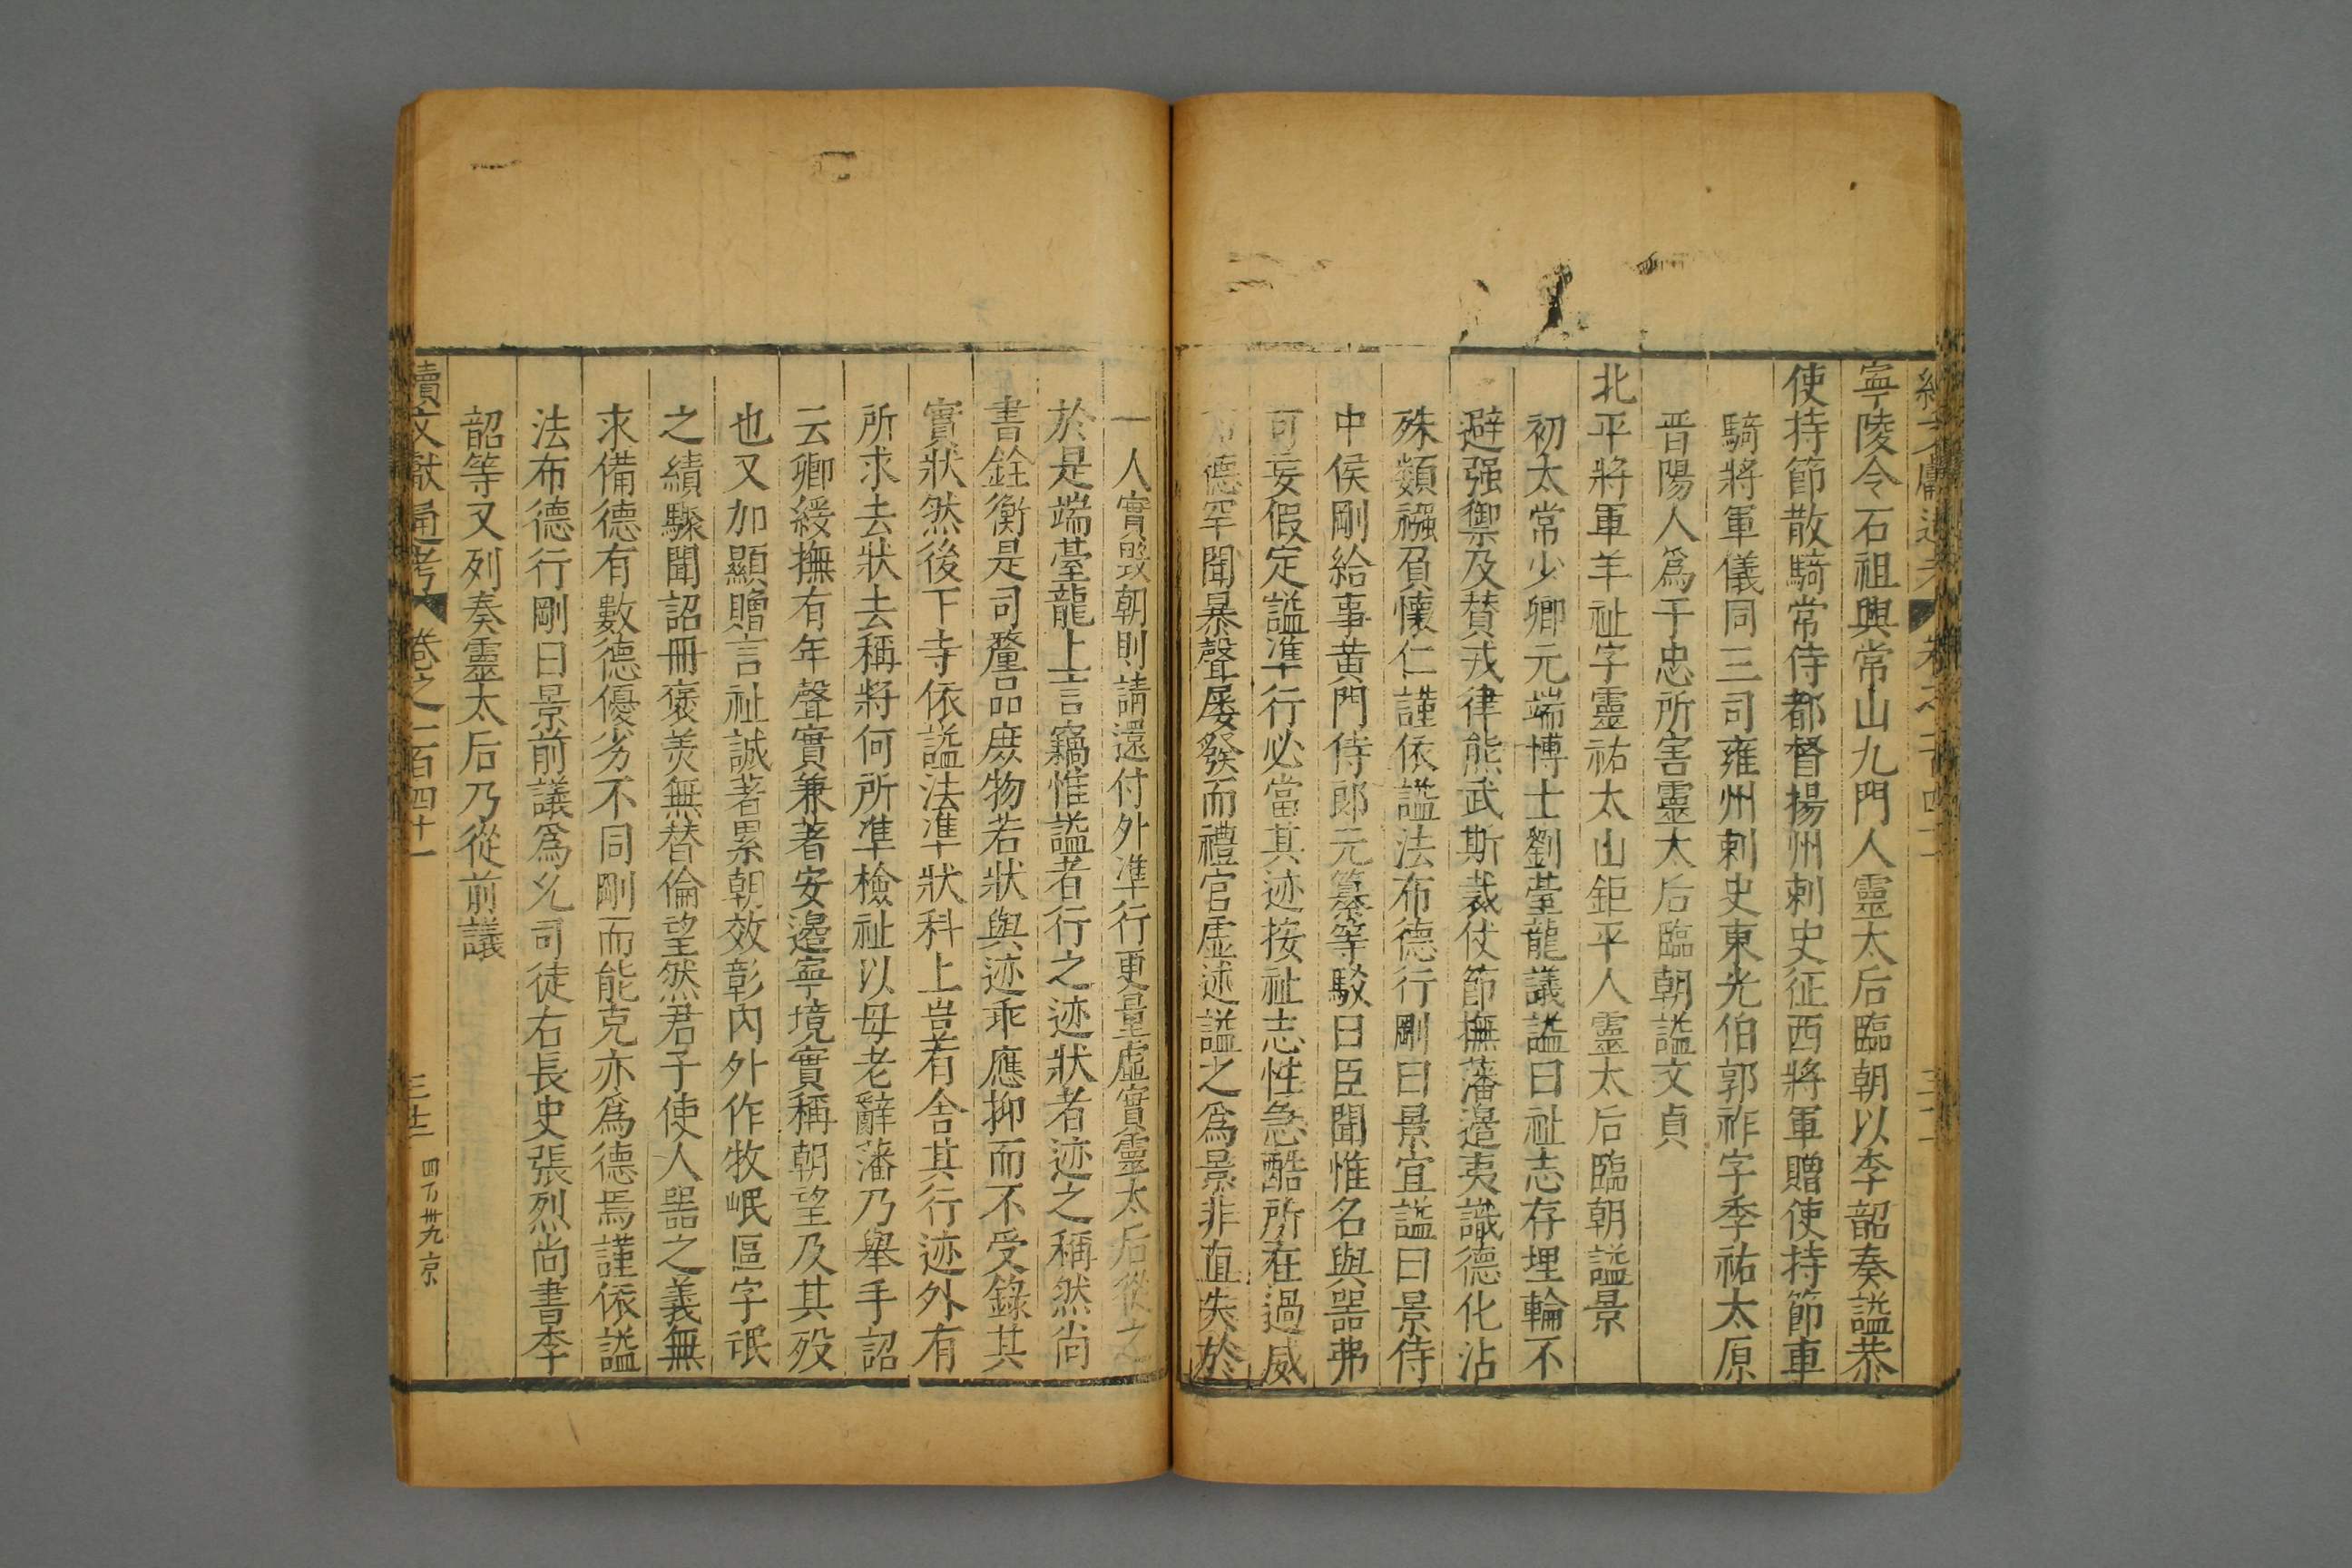 寧陵令石祖興常山九門人靈太后臨朝以李韶奏謚恭
使持節散騎常侍都督揚州刺史征西將軍贈使持節車
騎將軍儀同三司雍州刺史東光伯郭祚字季祐太原
晋陽人爲于忠所害靈太后臨朝謚文貞
北平將軍羊祉字靈祐太山鉅平人靈太后臨朝謚景
初太常少卿元端博士劉臺龍議謚曰祉志存埋輪不
避强禦及贊戎律熊武斯裁仗節撫藩邉夷識德化沾
殊類襁負懷仁謹依謚法布德行剛曰景宜謚曰景侍
中侯剛給事黄門侍郎元纂等駁曰臣聞惟名與噐弗
可妄假定謚準行必當其迹按祉志性急酷所在過威
德罕聞暴聲屡發而禮官虚述謚之爲景非直失於
一人實毁朝則請還付外準行更量虛實靈太后從之
於是端臺龍上言竊惟謚者行之迹狀者迹之稱然尚
書銓衡是司釐品庻物若狀與迹乖應抑而不受錄其
實狀然後下寺依謚法準狀科上豈有舍其行迹外有
所求去狀去稱將何所準檢祉以母老辭藩乃舉手詔
云卿綏撫有年聲實兼著安邉寧境實稱朝望及其殁
也又加顯贈言祉誠著累朝效彰內外作牧岷區字氓
之績驟聞詔冊褒美無替倫望然君子使人噐之義無
求備德有數德優劣不同剛而能克亦爲德焉謹依謚
法布德行剛曰景前議爲允司徒右長史張烈尚書李
韶等又列奏靈太后乃從前議
續文獻通考 卷之一百四十一 三十二 四百卅九 京